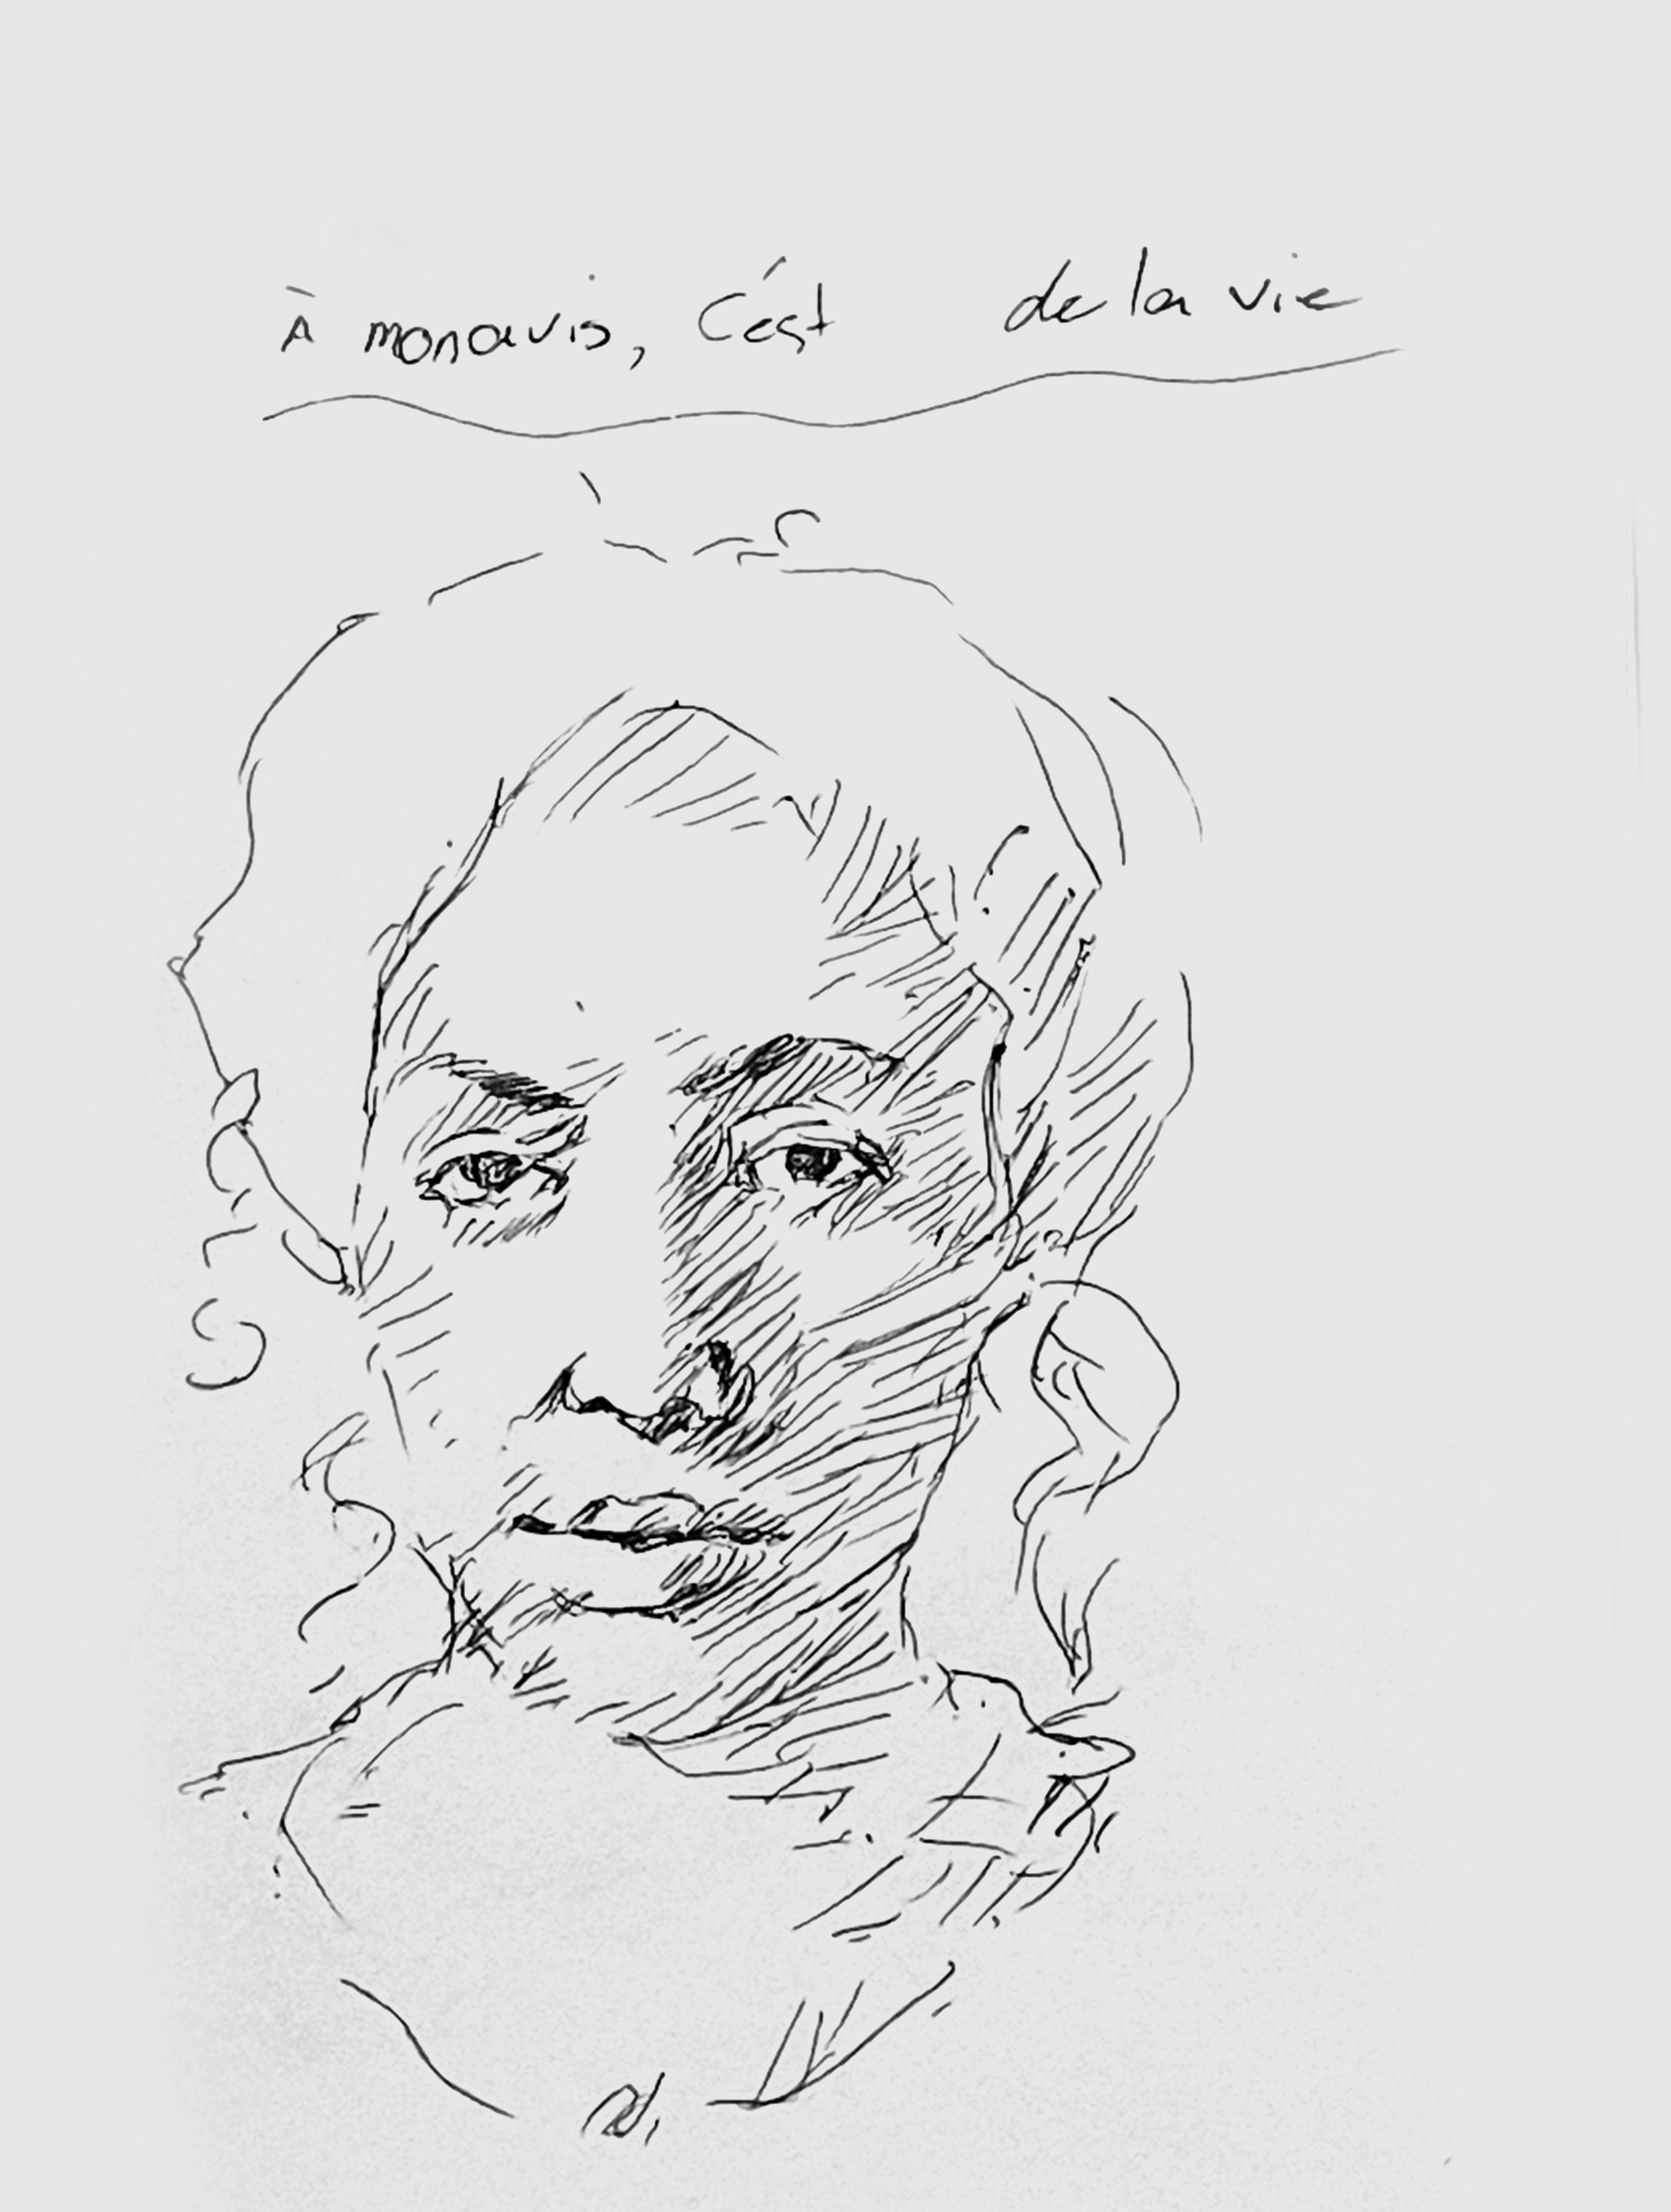 À mon avis, C'est de la vie